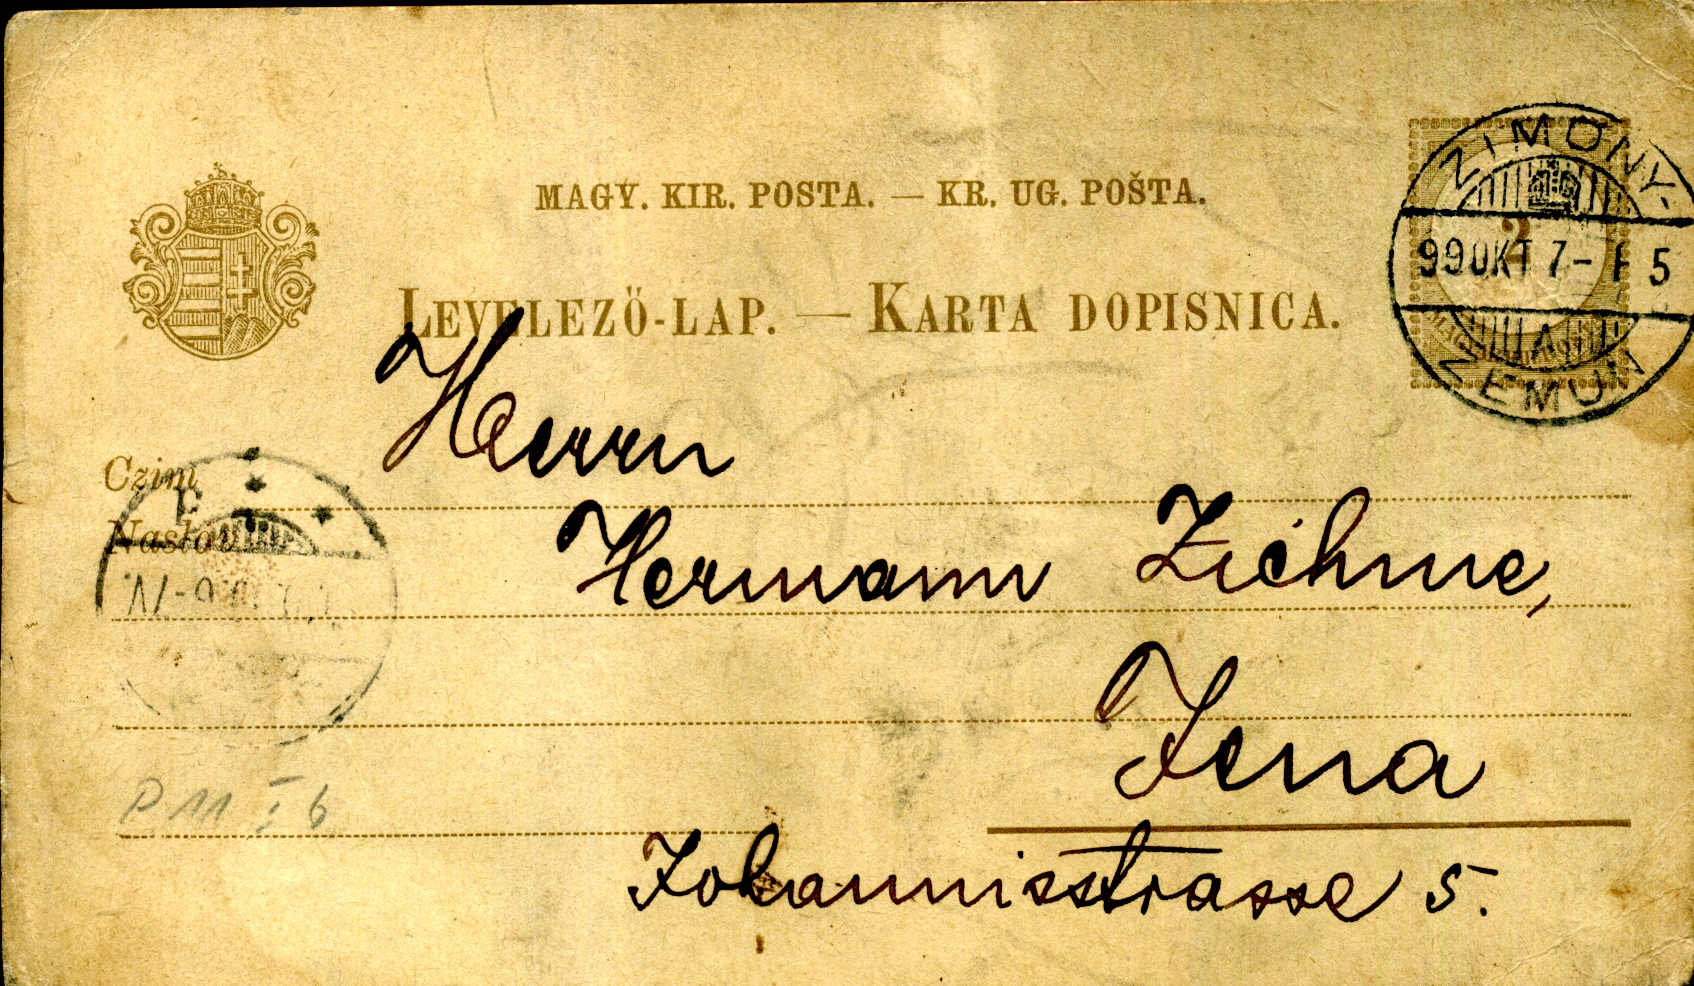 MAGY. KIR. POSTA. — KR. UG. POŠTA.
LEVELEZŐ-LAP. — KARTA DOPISNICA.
ZIMONY-
2
99 OKT 7- 5
ZEMUN
Czim
Naslov
Herrn
Hermann Ziehme,
Jena
Johannisstrasse 5.
P 11 I 6